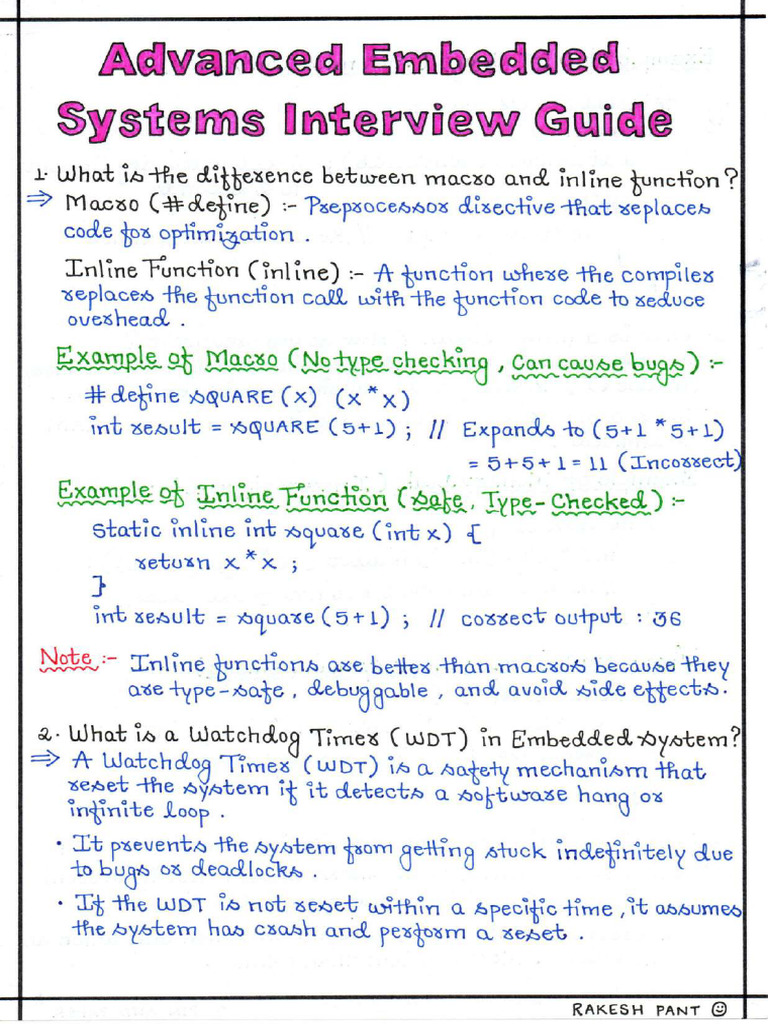 Advanced Embedded
Systems Interview Guide
1. What is the difference between macro and inline function?
⇒ Macro (#define) :- Preprocessor directive that replaces
code for optimization .
Inline Function (inline) :- A function where the compiler
replaces the function call with the function code to reduce
overhead .
Example of Macro (No type checking , Can cause bugs) :-
#define SQUARE (x) (x*x)
int result = SQUARE (5+1) ; // Expands to (5+1 *5+1)
= 5+5+1 = 11 (Incorrect)
Example of Inline Function (safe, Type-Checked) :-
Static inline int square (int x) {
return x*x ;
}
int result = square (5+1) ; // correct output : 36
Note :- Inline functions are better than macros because they
are type-safe , debuggable , and avoid side effects.
2. What is a Watchdog Timer (WDT) in Embedded system?
⇒ A Watchdog Timer (WDT) is a safety mechanism that
reset the system if it detects a software hang or
infinite loop .
• It prevents the system from getting stuck indefinitely due
to bugs or deadlocks .
• If the WDT is not reset within a specific time , it assumes
the system has crash and perform a reset .
RAKESH PANT ☺